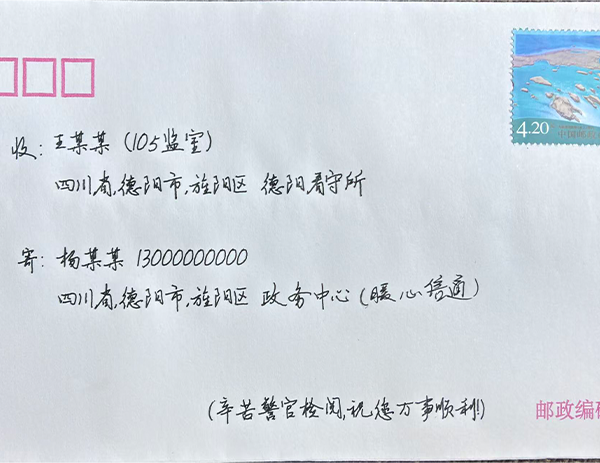 4.20
中国邮政
收: 王某某 (105监室)
四川省,德阳市,旌阳区 德阳看守所
寄: 杨某某 13000000000
四川省,德阳市,旌阳区 政务中心 (暖心信通)
(辛苦警官检阅,祝您万事顺利!)
邮政编码